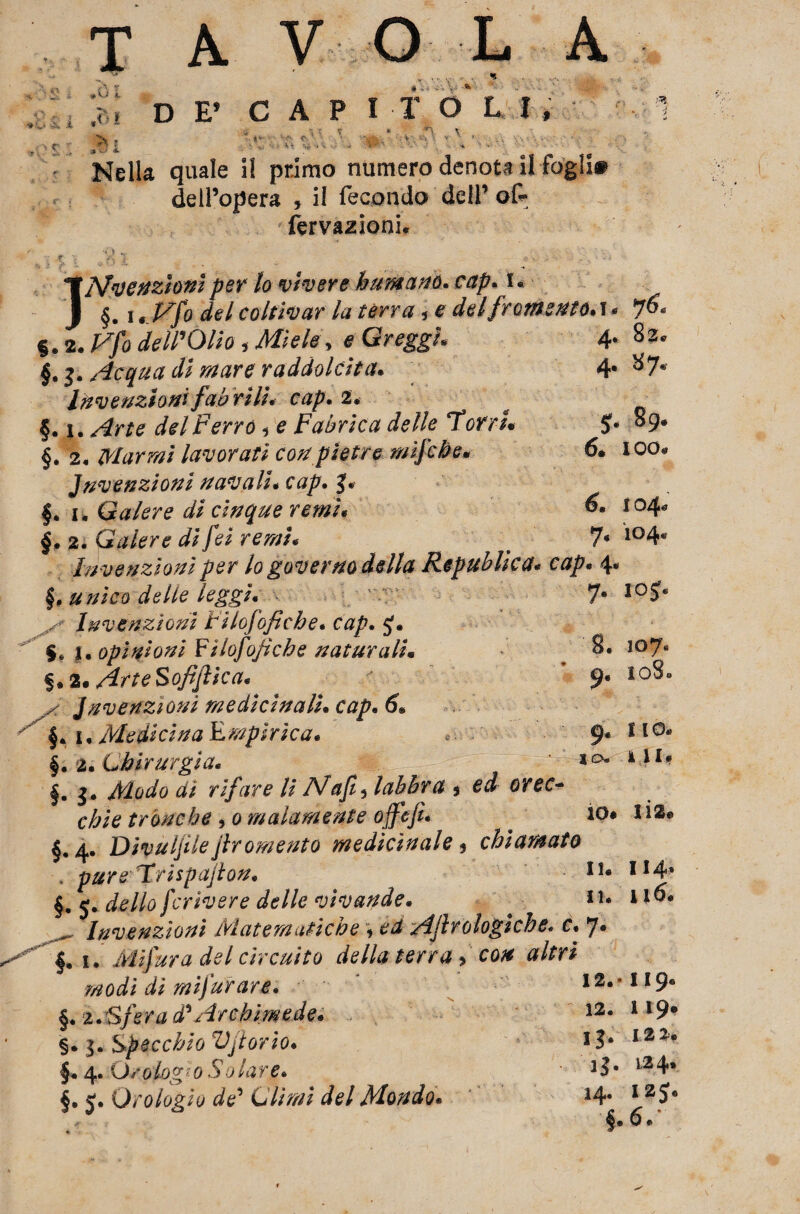 TAVOLA
DE' CAPITOLI,
Nella quale il primo numero denota il foglio
dell'opera , il secondo dell' os-
servazioni.
INvenzioni per lo vivere humano. cap. 1.
§. 1. Vso del coltivar la terra , e del fromento. 1. 76.
§. 2. Vso dell'Olio , Miele , e Greggi. 4. 82.
§. 3. Acqua di mare raddolcita. 4. 87.
Invenzioni fabrili. cap. 2.
§. 1. Arte del Ferro , e Fabrica delle Torri. 5. 89.
§. 2. Marmi lavorati con pietre mische. 6. 100.
Jnvenzioni navali. cap. 3.
§. 1. Galere di cinque remi. 6. 104.
§. 2. Galere di sei remi. 7. 104.
Invenzioni per lo governo della Republica. cap. 4.
§. unico delle leggi. 7. 105.
Invenzioni Filosofiche. cap. 5.
§. 1. opinioni Filosofiche naturali. 8. 107.
§. 2. Arte Sofistica. 9. 108.
Jnvenzioni medicinali. cap. 6.
§. 1. Medicina Empirica. 9. 110.
§. 2. Chirurgia. 10. 111.
§. 3. Modo di rifare li Nasi, labbra , ed orec-
chie tronche , o malamente offesi. 10. 112.
§. 4. Divulsile stromento medicinale , chiamato
pure Trispaston. 11. 114.
§. 5. dello scrivere delle vivande. 11. 116.
Invenzioni Matematiche , ed Astrologiche. c. 7.
§. 1. Misura del circuito della terra , con altri
modi di misurare. 12. 119.
§. 2. Sfera d'Archimede. 12. 119.
§. 3. Specchio Vstorio. 13. 122.
§. 4. Orologio Solare. 13. 124.
§. 5. Orologio de' Climi del Mondo. 14. 125.
§. 6.